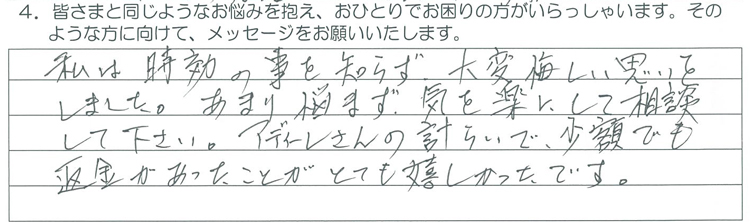 ４．皆さまと同じようなお悩みを抱え、おひとりでお困りの方がいらっしゃいます。その
ような方に向けて、メッセージをお願いいたします。
私は時効の事を知らず、大変悔しい思いを
しました。あまり悩まず、気を楽にして相談
して下さい。アディーレさんの計らいで、少額でも
返金があったことがとても嬉しかったです。